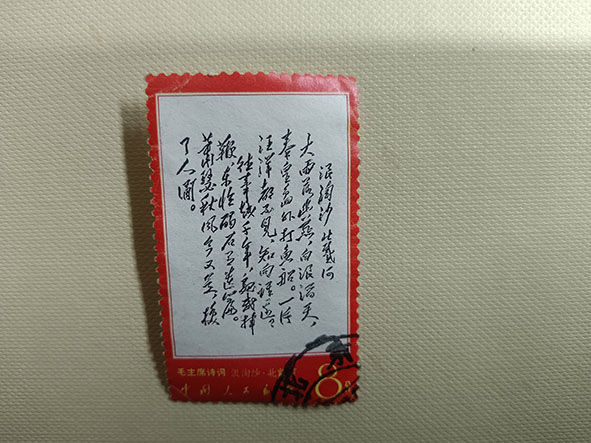 浪淘沙 北戴河
大雨落幽燕,白浪滔天,
秦皇島外打魚船。一片
汪洋都不見,知向誰邊?
往事越千年,魏武揮
鞭,東臨碣石有遺篇。
蕭瑟秋風今又是,換
了人間。
毛主席诗词 浪淘沙·北
中国人民
8